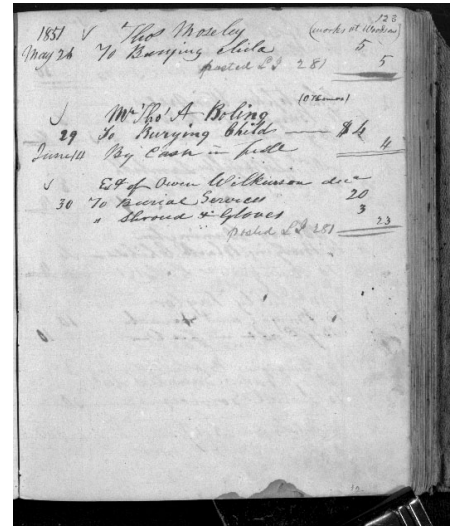 123
1851 √ Thos Moseley (works at Woodus)
May 26 To Burying Child 5
posted LJ 281 5
√ Mr Tho' A Boling
29 To Burying Child — $4
June 14 By Cash in full 4
√ Est of Owen Wilkinson dec
30 To Burial Services 20
" Shroud & Gloves 3
posted LJ 281 23